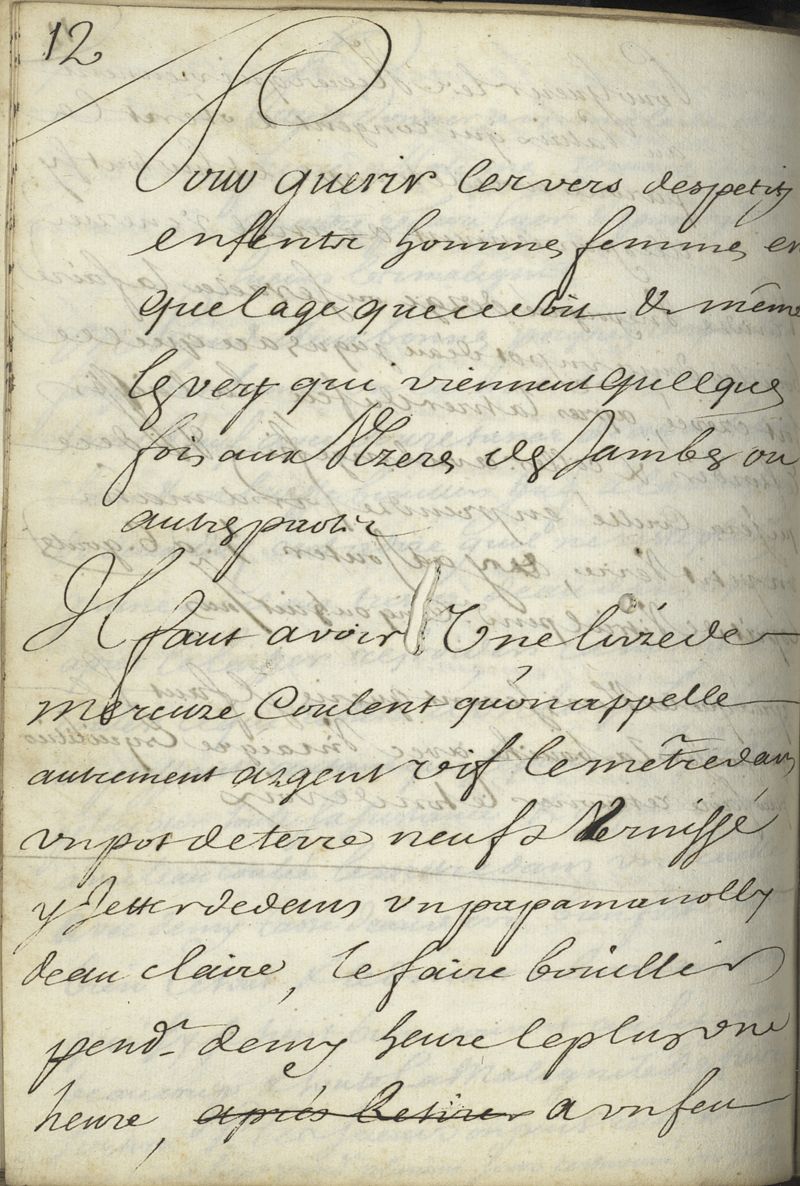 12
Pour guerir les vers des petits
enfents hommes femmes en
quelage que ce soit & même
les vers qui viennent quelques
fois aux Ulzeres des Jambes ou
autres parties
Il faut avoir Une livre de
mercure Coulent qu'on appelle
autrement argent vif le mêtre dans
un pot de terre neuf & Vernissé
y Jetter dedens un papamanolly
deau claire, le faire boüillir
pend.t demy heure le plus une
heure, après le tirer a un feu